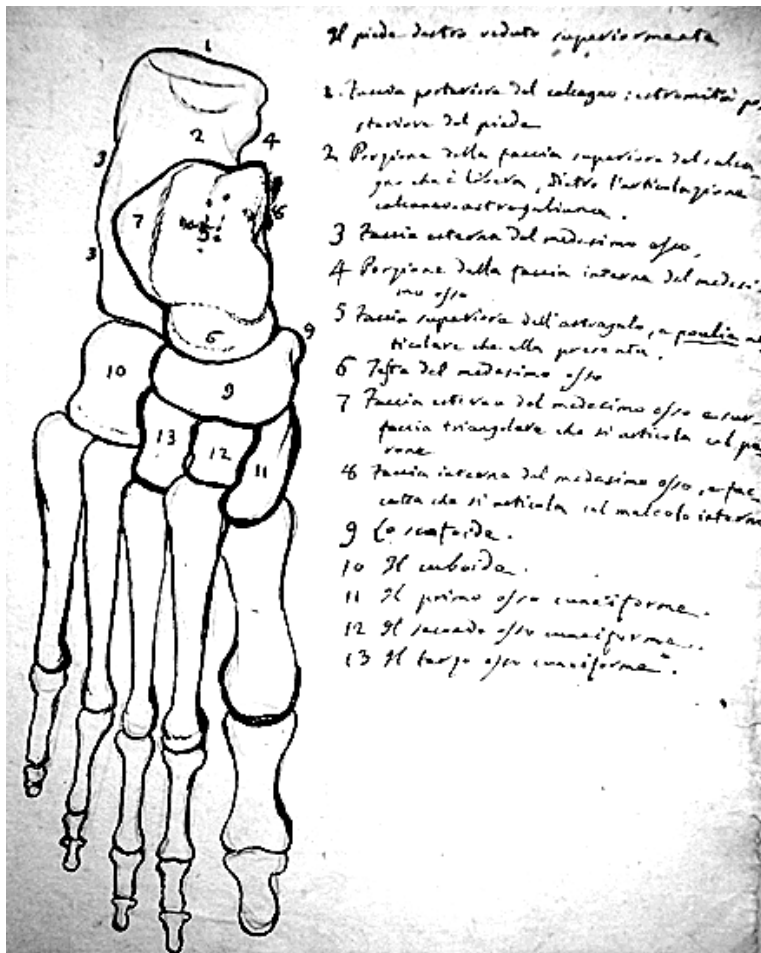 Il piede destro veduto superiormente
1. Faccia posteriore del calcagno: estremità po-
steriore del piede
2 Porzione della faccia superiore del calca-
gno che è libera, dietro l'articolazione
calcaneo-astragaliana.
3 Faccia esterna del medesimo osso,
4 Porzione della faccia interna del medesi-
mo osso
5 Faccia superiore dell'astragalo, e puulia ar-
ticolare che ella presenta.
6 Testa del medesimo osso
7 Faccia esterna del medecimo osso e sur-
faccia triangolare che si articola col pe-
rone
8 Faccia interna del medesimo osso, e fac-
cetta che si articola col malleolo interno
9 Lo scafoide.
10 Il cuboide.
11 Il primo osso cuneiforme.
12 Il secondo osso cuneiforme.
13 Il terzo osso cuneiforme.
1
2
3
4
7
5
8
3
6
9
10
9
13
12
11